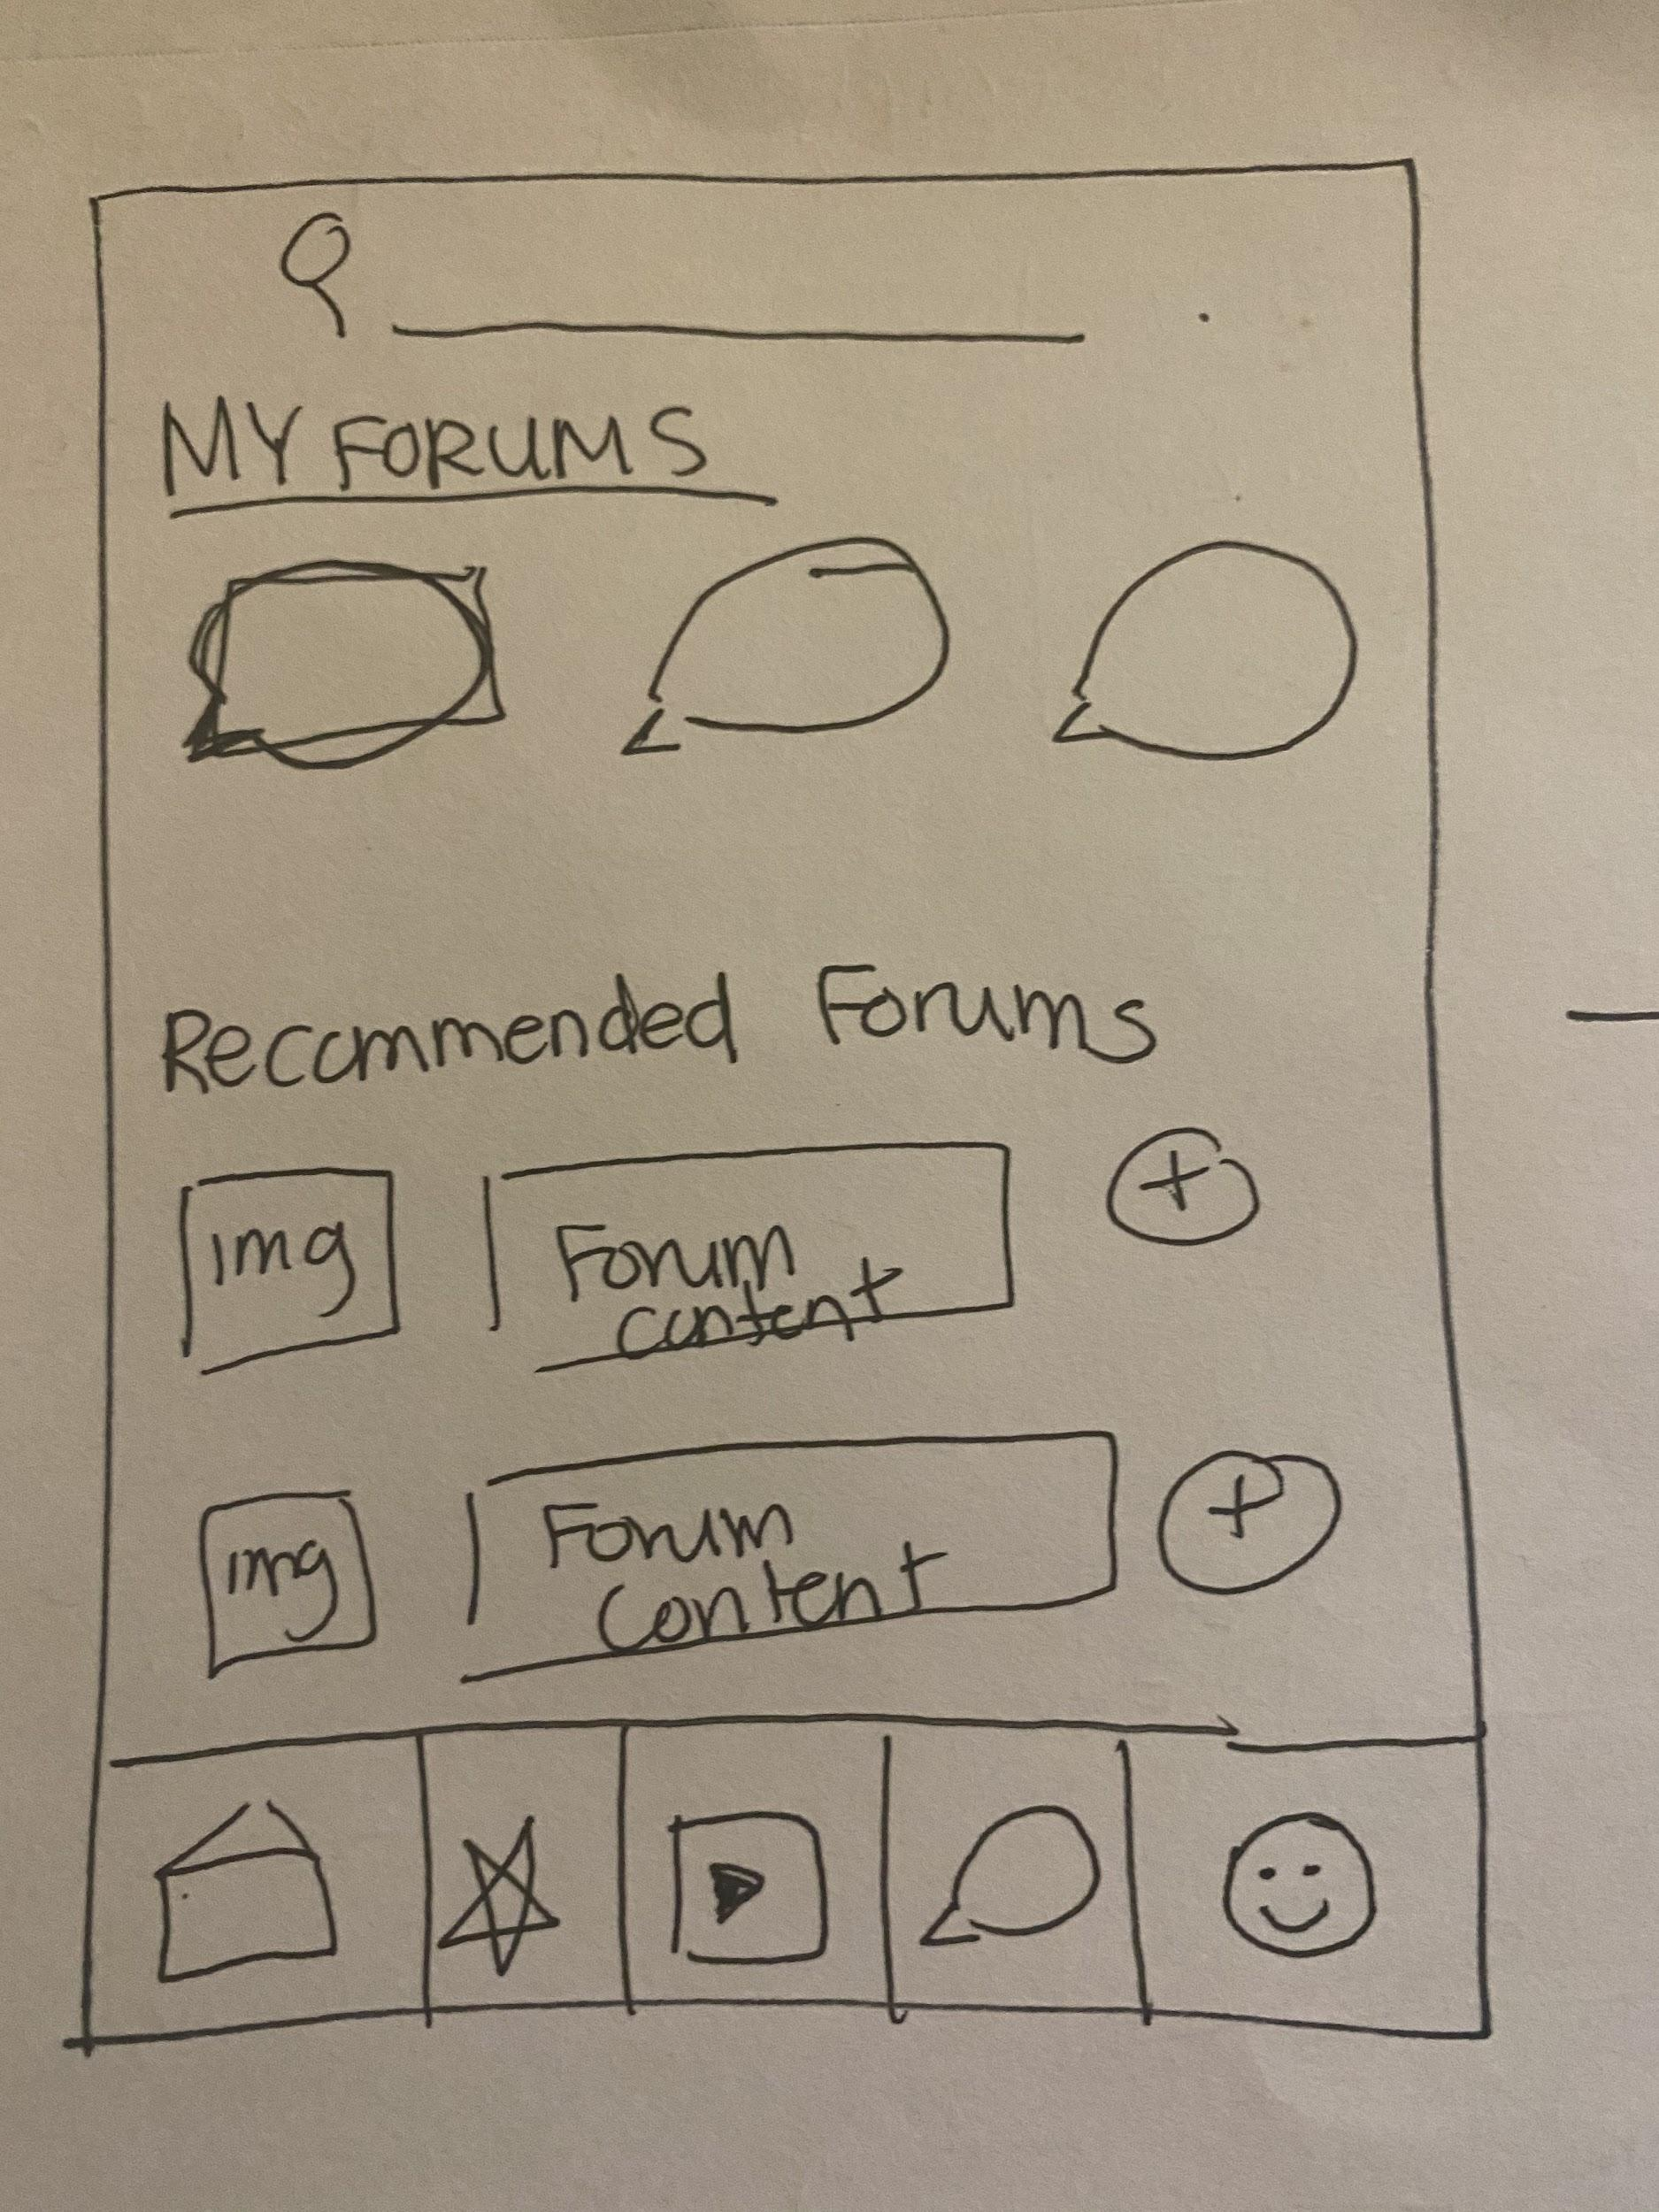 MY FORUMS
Recommended Forums
img
Forum
content
+
img
Forum
content
+